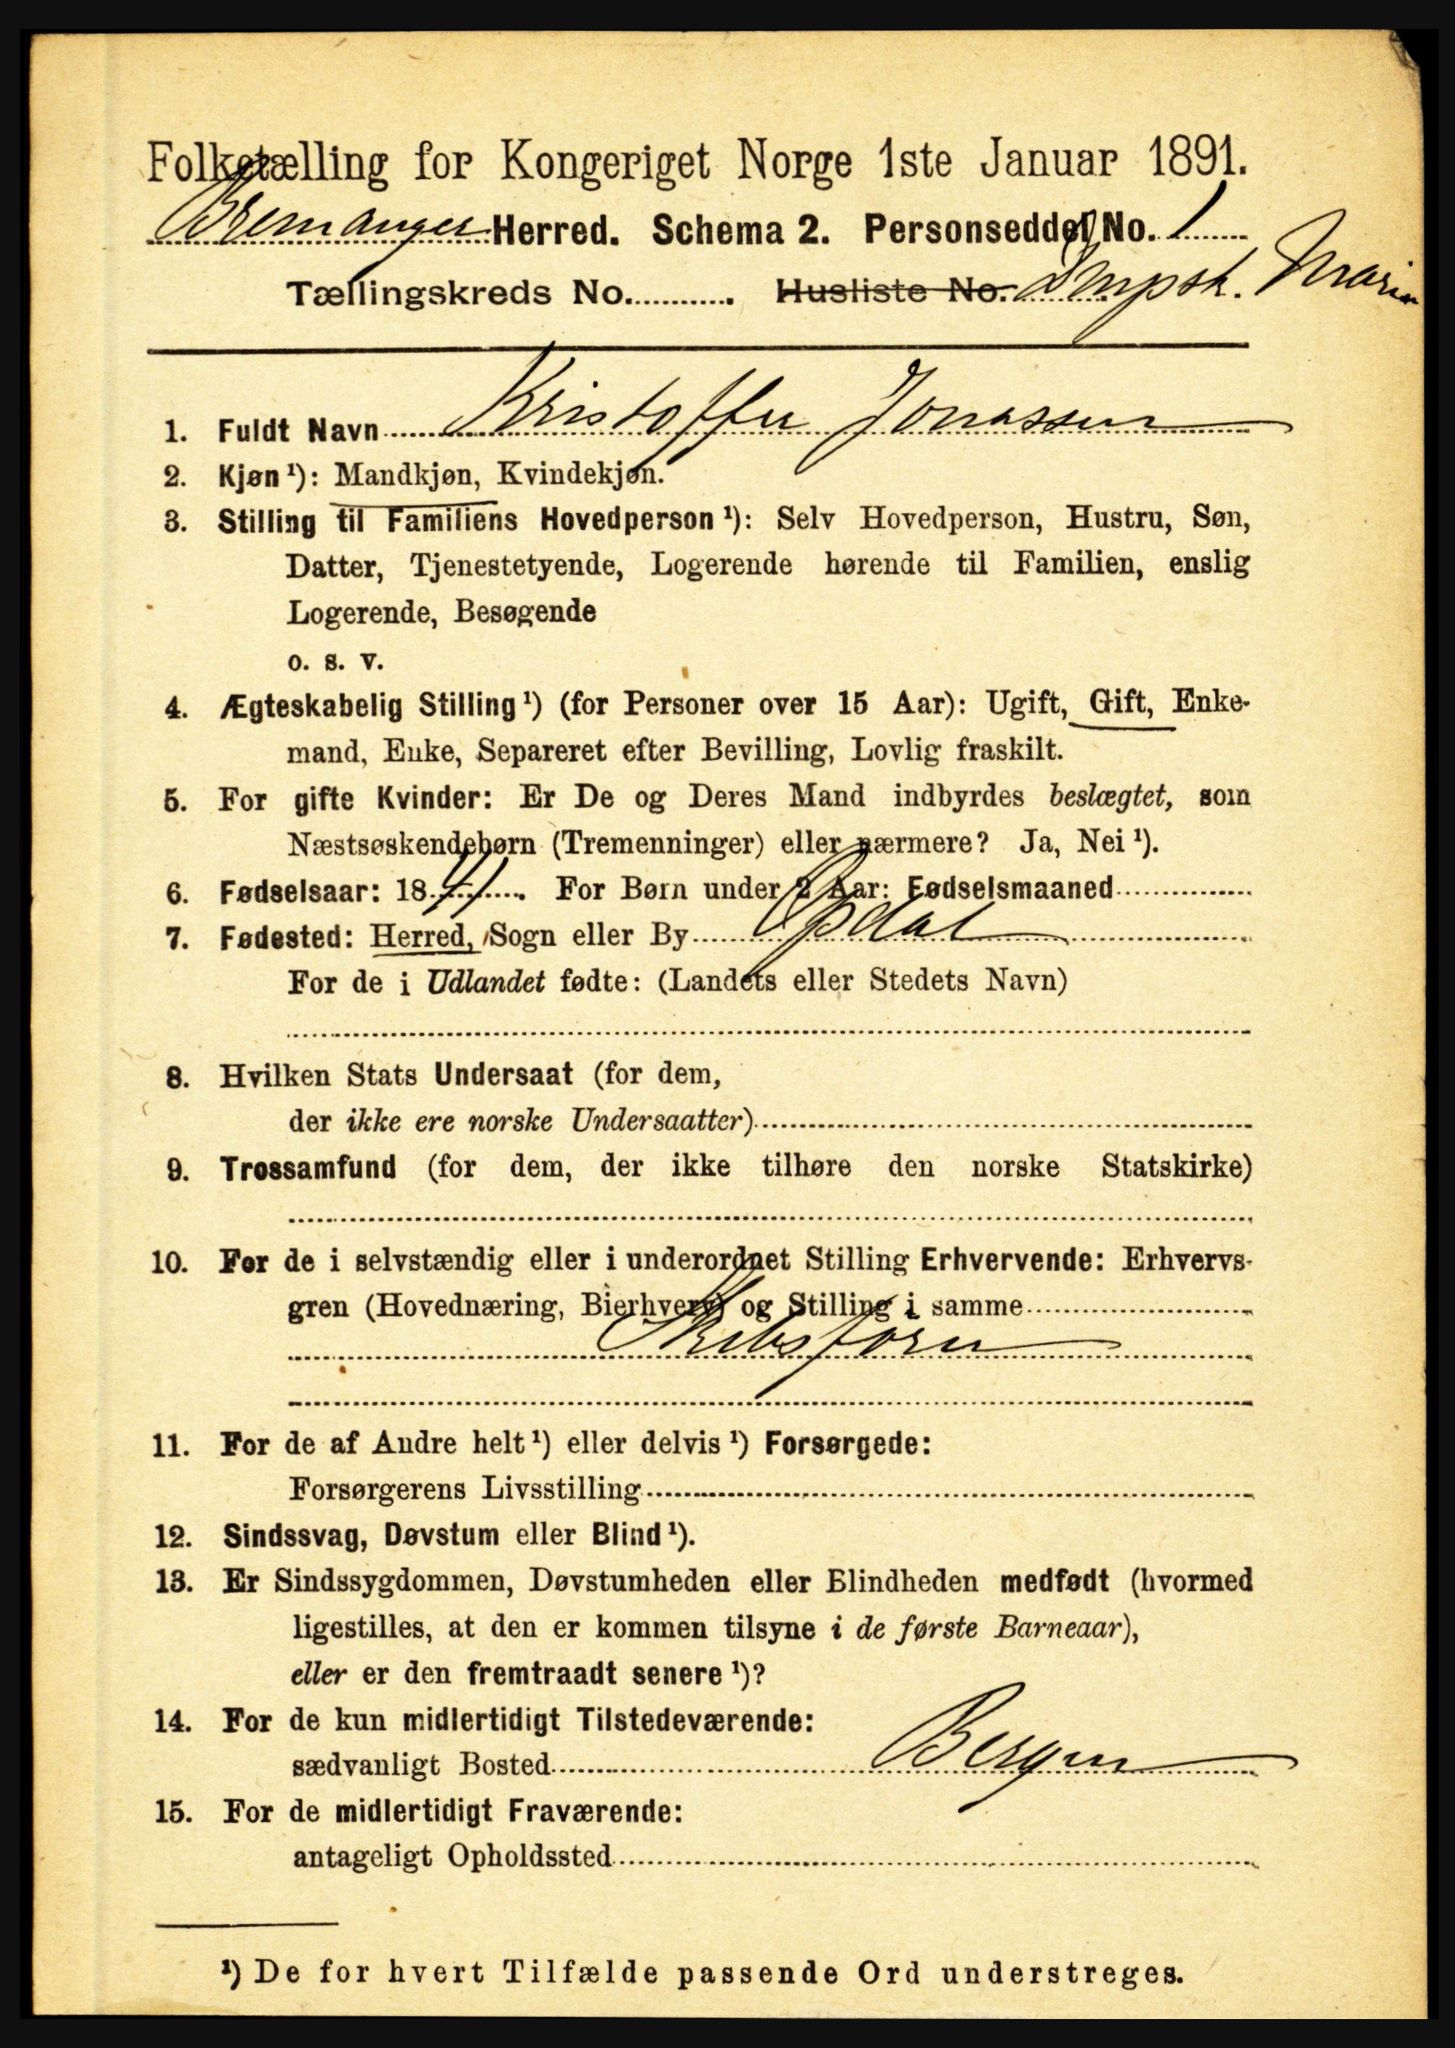 Folketælling for Kongeriget Norge 1ste Januar 1891.
Bremanger Herred. Schema 2. Personseddel No. 1
Tællingskreds No. Husliste No. Dmpsk. Maria
1. Fuldt Navn Kristoffer Jonassen
2. Kjøn ¹): Mandkjøn, Kvindekjøn.
3. Stilling til Familiens Hovedperson ¹): Selv Hovedperson, Hustru, Søn,
Datter, Tjenestetyende, Logerende hørende til Familien, enslig
Logerende, Besøgende
o. s. v.
4. Ægteskabelig Stilling ¹) (for Personer over 15 Aar): Ugift, Gift, Enke-
mand, Enke, Separeret efter Bevilling, Lovlig fraskilt.
5. For gifte Kvinder: Er De og Deres Mand indbyrdes beslægtet, som
Næstsøskendebørn (Tremenninger) eller nærmere? Ja, Nei ¹).
6. Fødselsaar: 1841. For Børn under 2 Aar: Fødselsmaaned
7. Fødested: Herred, Sogn eller By Opdal
For de i Udlandet fødte: (Landets eller Stedets Navn)
8. Hvilken Stats Undersaat (for dem,
der ikke ere norske Undersaatter)
9. Trossamfund (for dem, der ikke tilhøre den norske Statskirke)
10. For de i selvstændig eller i underordnet Stilling Erhvervende: Erhvervs-
gren (Hovednæring, Bierhverv) og Stilling i samme
Skibsfører
11. For de af Andre helt ¹) eller delvis ¹) Forsørgede:
Forsørgerens Livsstilling
12. Sindssvag, Døvstum eller Blind ¹).
13. Er Sindssygdommen, Døvstumheden eller Blindheden medfødt (hvormed
ligestilles, at den er kommen tilsyne i de første Barneaar),
eller er den fremtraadt senere ¹)?
14. For de kun midlertidigt Tilstedeværende:
sædvanligt Bosted Bergen
15. For de midlertidigt Fraværende:
antageligt Opholdssted
¹) De for hvert Tilfælde passende Ord understreges.